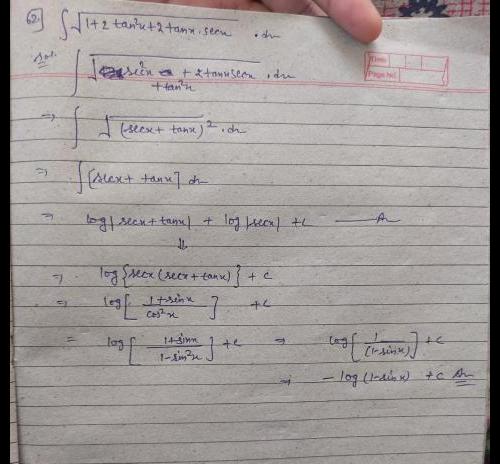 62. ∫ √(1+2 tan²x+2 tanx . secx) . dx
Sol. ∫ √(sec²x + 2 tanx secx + tan²x) . dx
⇒ ∫ √(secx + tanx)² . dx
⇒ ∫ [secx + tanx] dx
⇒ log|secx + tanx| + log|secx| + c —— A
⇓
⇒ log{secx (secx + tanx)} + c
⇒ log[(1+sinx)/(cos²x)] + c
= log[(1+sinx)/(1-sin²x)] + c ⇒ log[1/(1-sinx)] + c
⇒ - log(1-sinx) + c Ans
Page No.